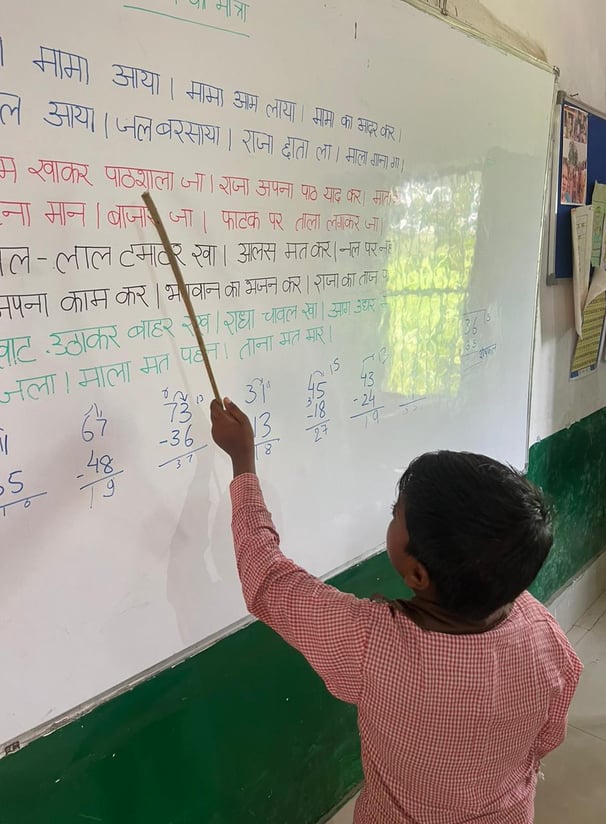 की मात्रा
मामा आया। मामा आम लाया। मामा का आदर कर।
आया। जल बरसाया। राजा छाता ला। माला गाना गा।
खाकर पाठशाला जा। राजा अपना पाठ याद कर।
मान। बाजार जा। फाटक पर ताला लगाकर जा।
लाल टमाटर खा। आलस मत कर। नल पर
काम कर। भगवान का भजन कर। राजा का ताज
उठाकर बाहर रख। राधा चावल खा। आग
माला मत पहन। ताना मत मार।
67 73 31 45 43 36
-48 -36 13 -18 -24
19 37 18 27 19